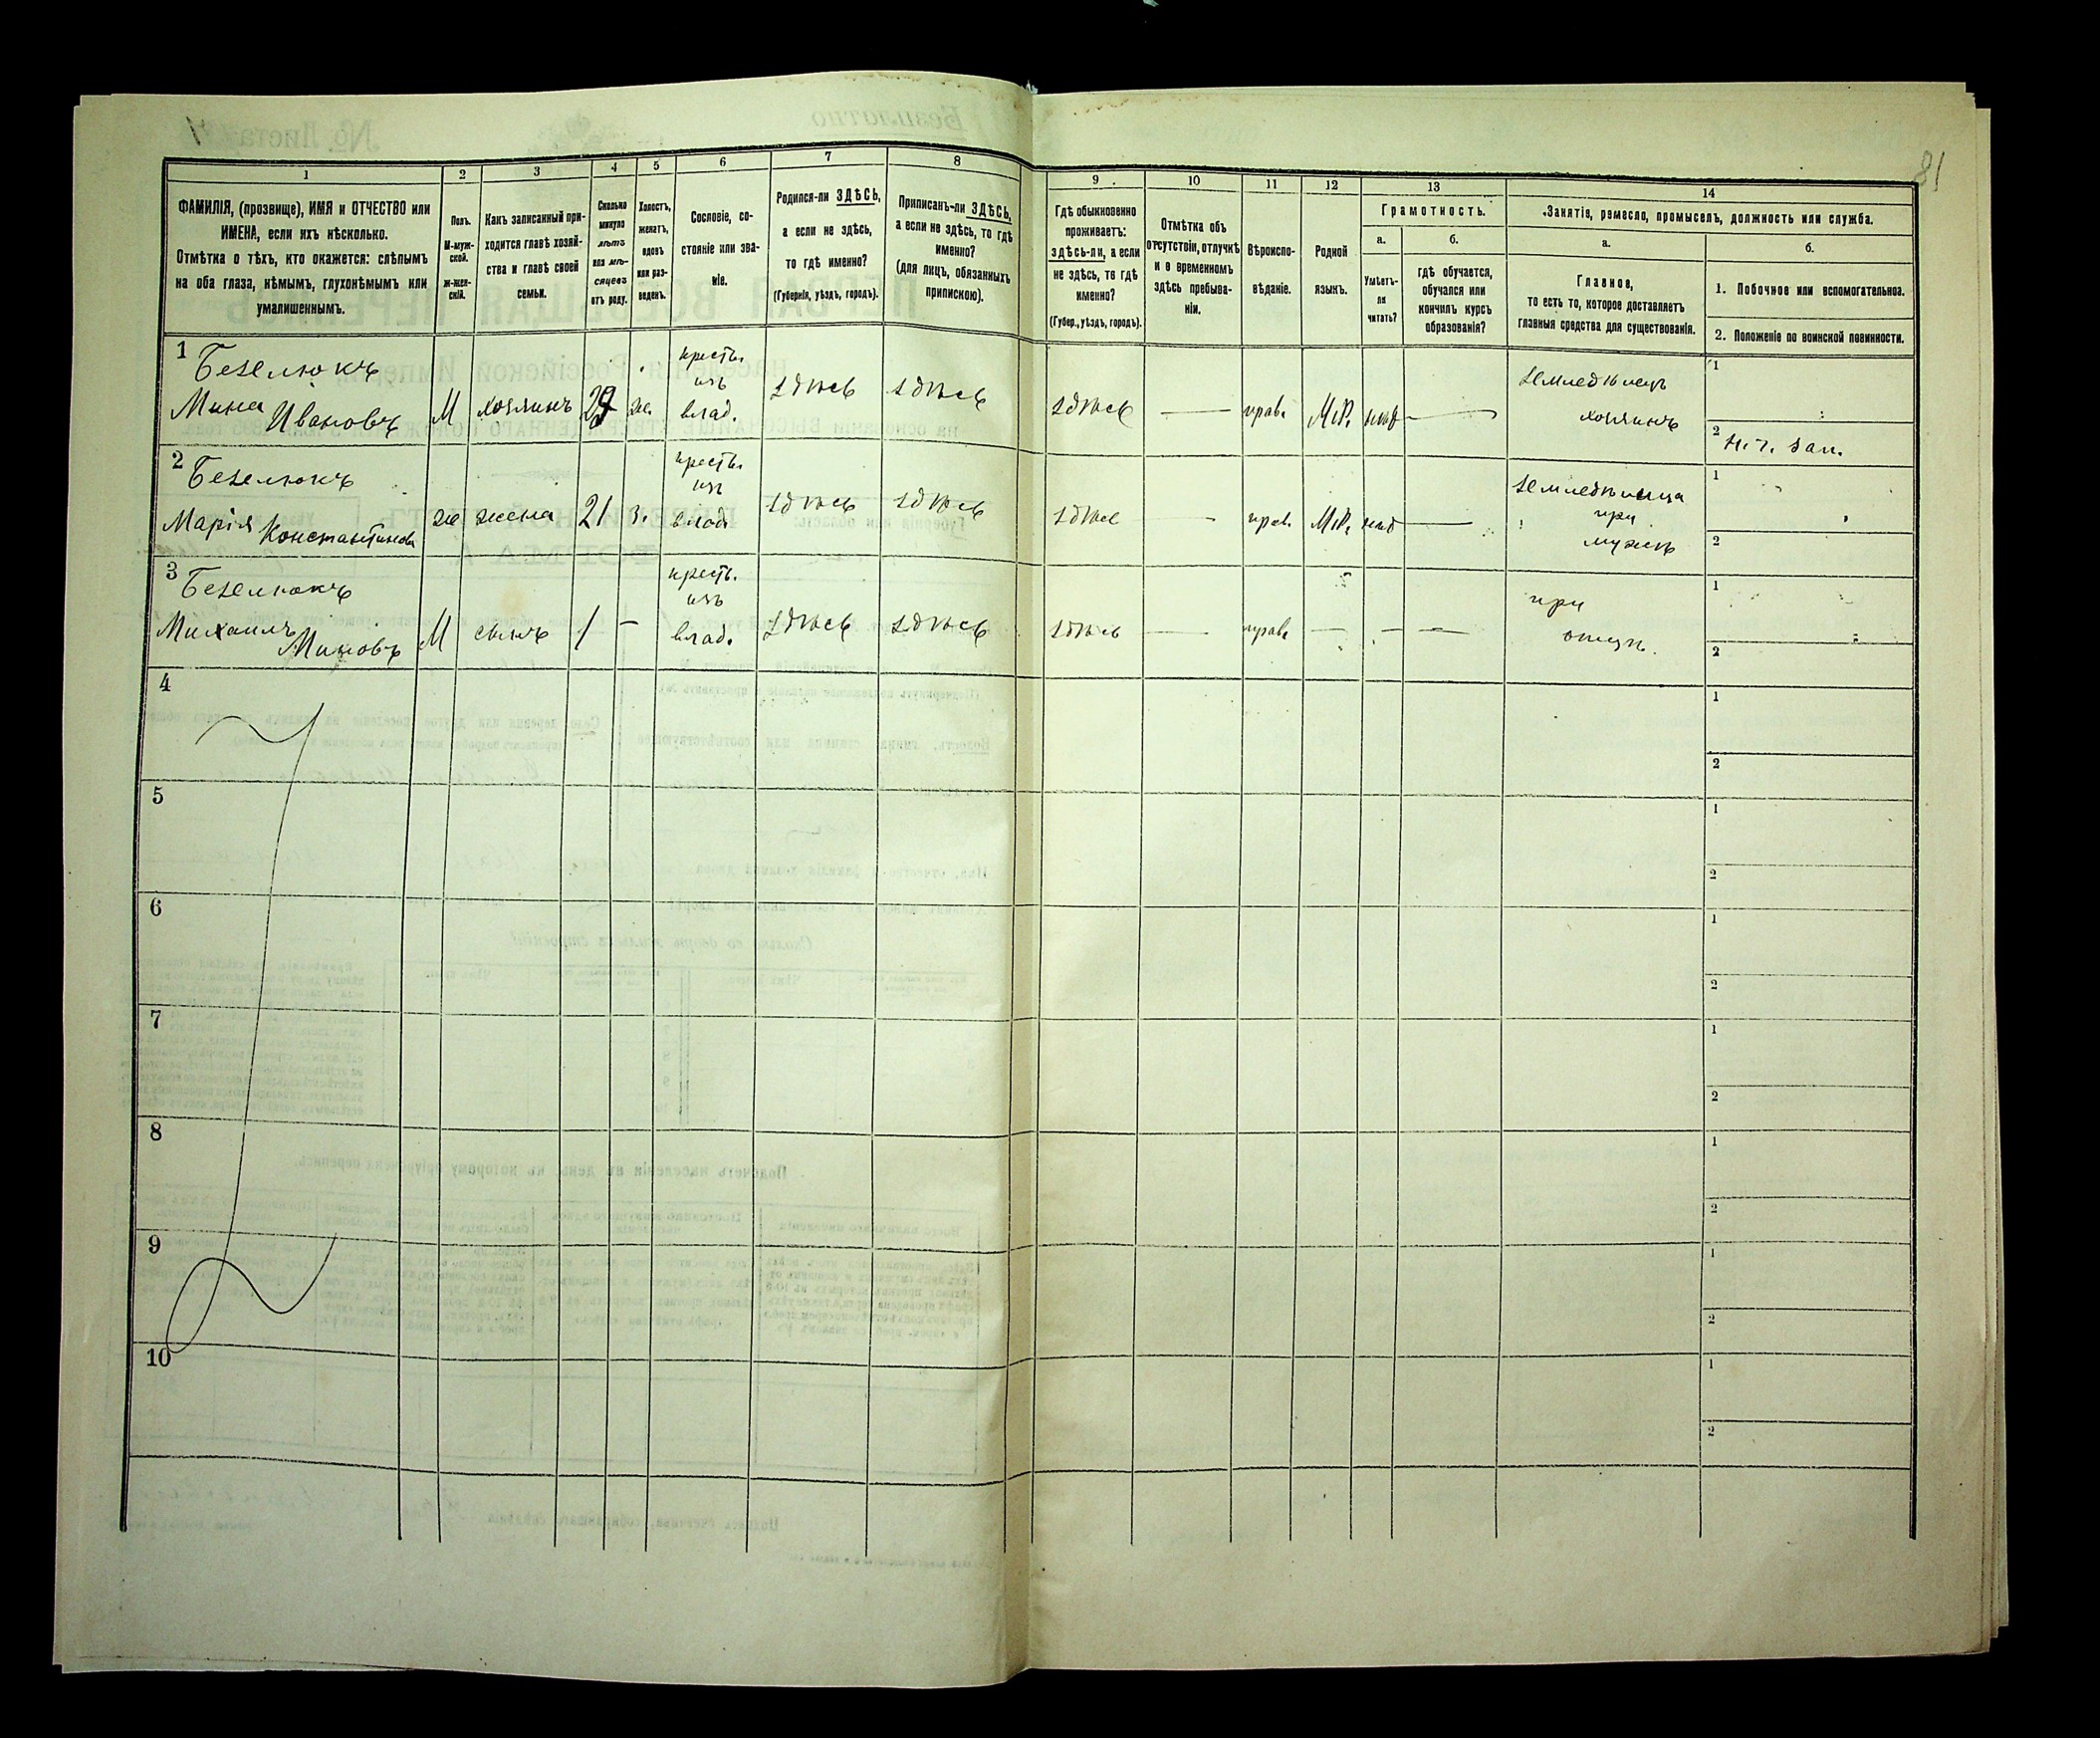 81
1
2
3
4
5
6
7
8
9
10
11
12
13
14
ФАМИЛІЯ, (прозвище), ИМЯ и ОТЧЕСТВО или
ИМЕНА, если ихъ нѣсколько.
Отмѣтка о тѣхъ, кто окажется: слѣпымъ
на оба глаза, нѣмымъ, глухонѣмымъ или
умалишеннымъ.
Полъ.
М-муж-
ской.
Ж-жен-
скій.
Какъ записанный при-
ходится главѣ хозяй-
ства и главѣ своей
семьи.
Сколько
минуло
лѣтъ
или мѣ-
сяцевъ
отъ роду.
Холостъ,
женатъ,
вдовъ
или раз-
веденъ.
Сословіе, со-
стояніе или зва-
ніе.
Родился-ли ЗДѢСЬ,
а если не здѣсь,
то гдѣ именно?
(Губернія, уѣздъ, городъ).
Приписанъ-ли ЗДѢСЬ,
а если не здѣсь, то гдѣ
именно?
(для лицъ, обязанныхъ
припискою).
Гдѣ обыкновенно
проживаетъ:
здѣсь-ли, а если
не здѣсь, то гдѣ
именно?
(Губер., уѣздъ, городъ).
Отмѣтка объ
отсутствіи, отлучкѣ
и о временномъ
здѣсь пребыва-
ніи.
Вѣроиспо-
вѣданіе.
Родной
языкъ.
Грамотность.
а.
б.
Умѣетъ-
ли
читать?
гдѣ обучается,
обучался или
кончилъ курсъ
образованія?
Занятіе, ремесло, промыселъ, должность или служба.
а.
б.
Главное,
то есть то, которое доставляетъ
главныя средства для существованія.
1. Побочное или вспомогательное.
2. Положеніе по воинской повинности.
1
Безелюкъ
Мина Ивановъ
М
хозяинъ
29
же.
крестъ.
изъ
влад.
здѣсь
здѣсь
здѣсь
—
прав.
М.Р.
нѣт
—
земледѣлецъ
хозяинъ
1
2 Н.Ч. Зап.
2
Безелюкъ
Марія Константинова
же
жена
21
З.
крестъ.
изъ
влад.
здѣсь
здѣсь
здѣсь
—
прав.
М.Р.
нѣт
—
земледѣлица
при
мужѣ
1
2
3
Безелюкъ
Михаилъ Миновъ
М
сынъ
1
—
крестъ.
изъ
влад.
здѣсь
здѣсь
здѣсь
—
прав.
—
—
—
при
отцѣ.
1
2
4
1
2
5
1
2
6
1
2
7
1
2
8
1
2
9
1
2
10
1
2